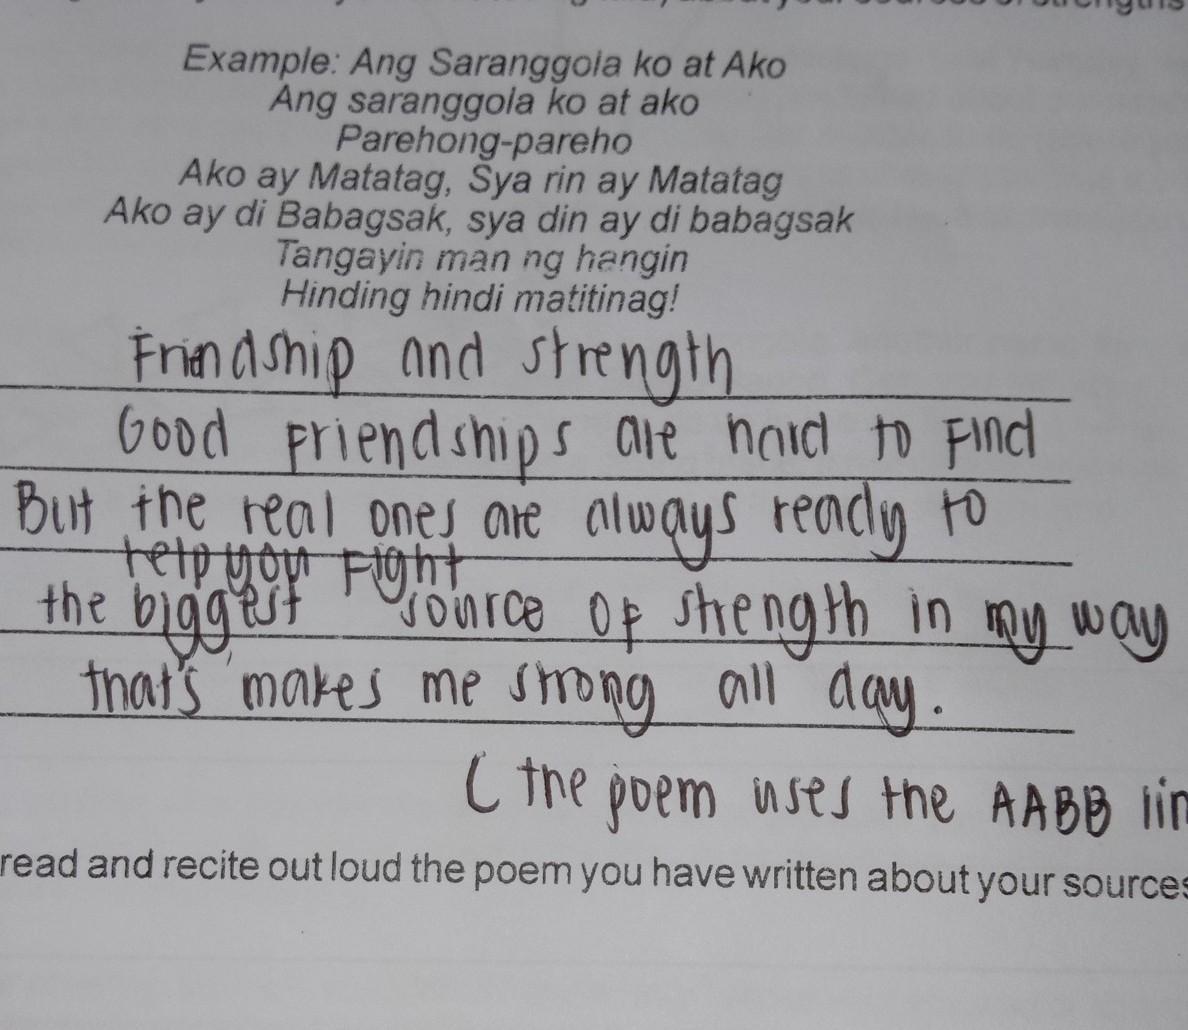 about your sources of strengths
Example: Ang Saranggola ko at Ako
Ang saranggola ko at ako
Parehong-pareho
Ako ay Matatag, Sya rin ay Matatag
Ako ay di Babagsak, sya din ay di babagsak
Tangayin man ng hangin
Hinding hindi matitinag!
Friendship and strength
Good Friendships are hard to Find
But the real ones are always ready to
help you Fight
the biggest source of strength in my way
that's makes me strong all day.
( the poem uses the AABB lin
read and recite out loud the poem you have written about your sources